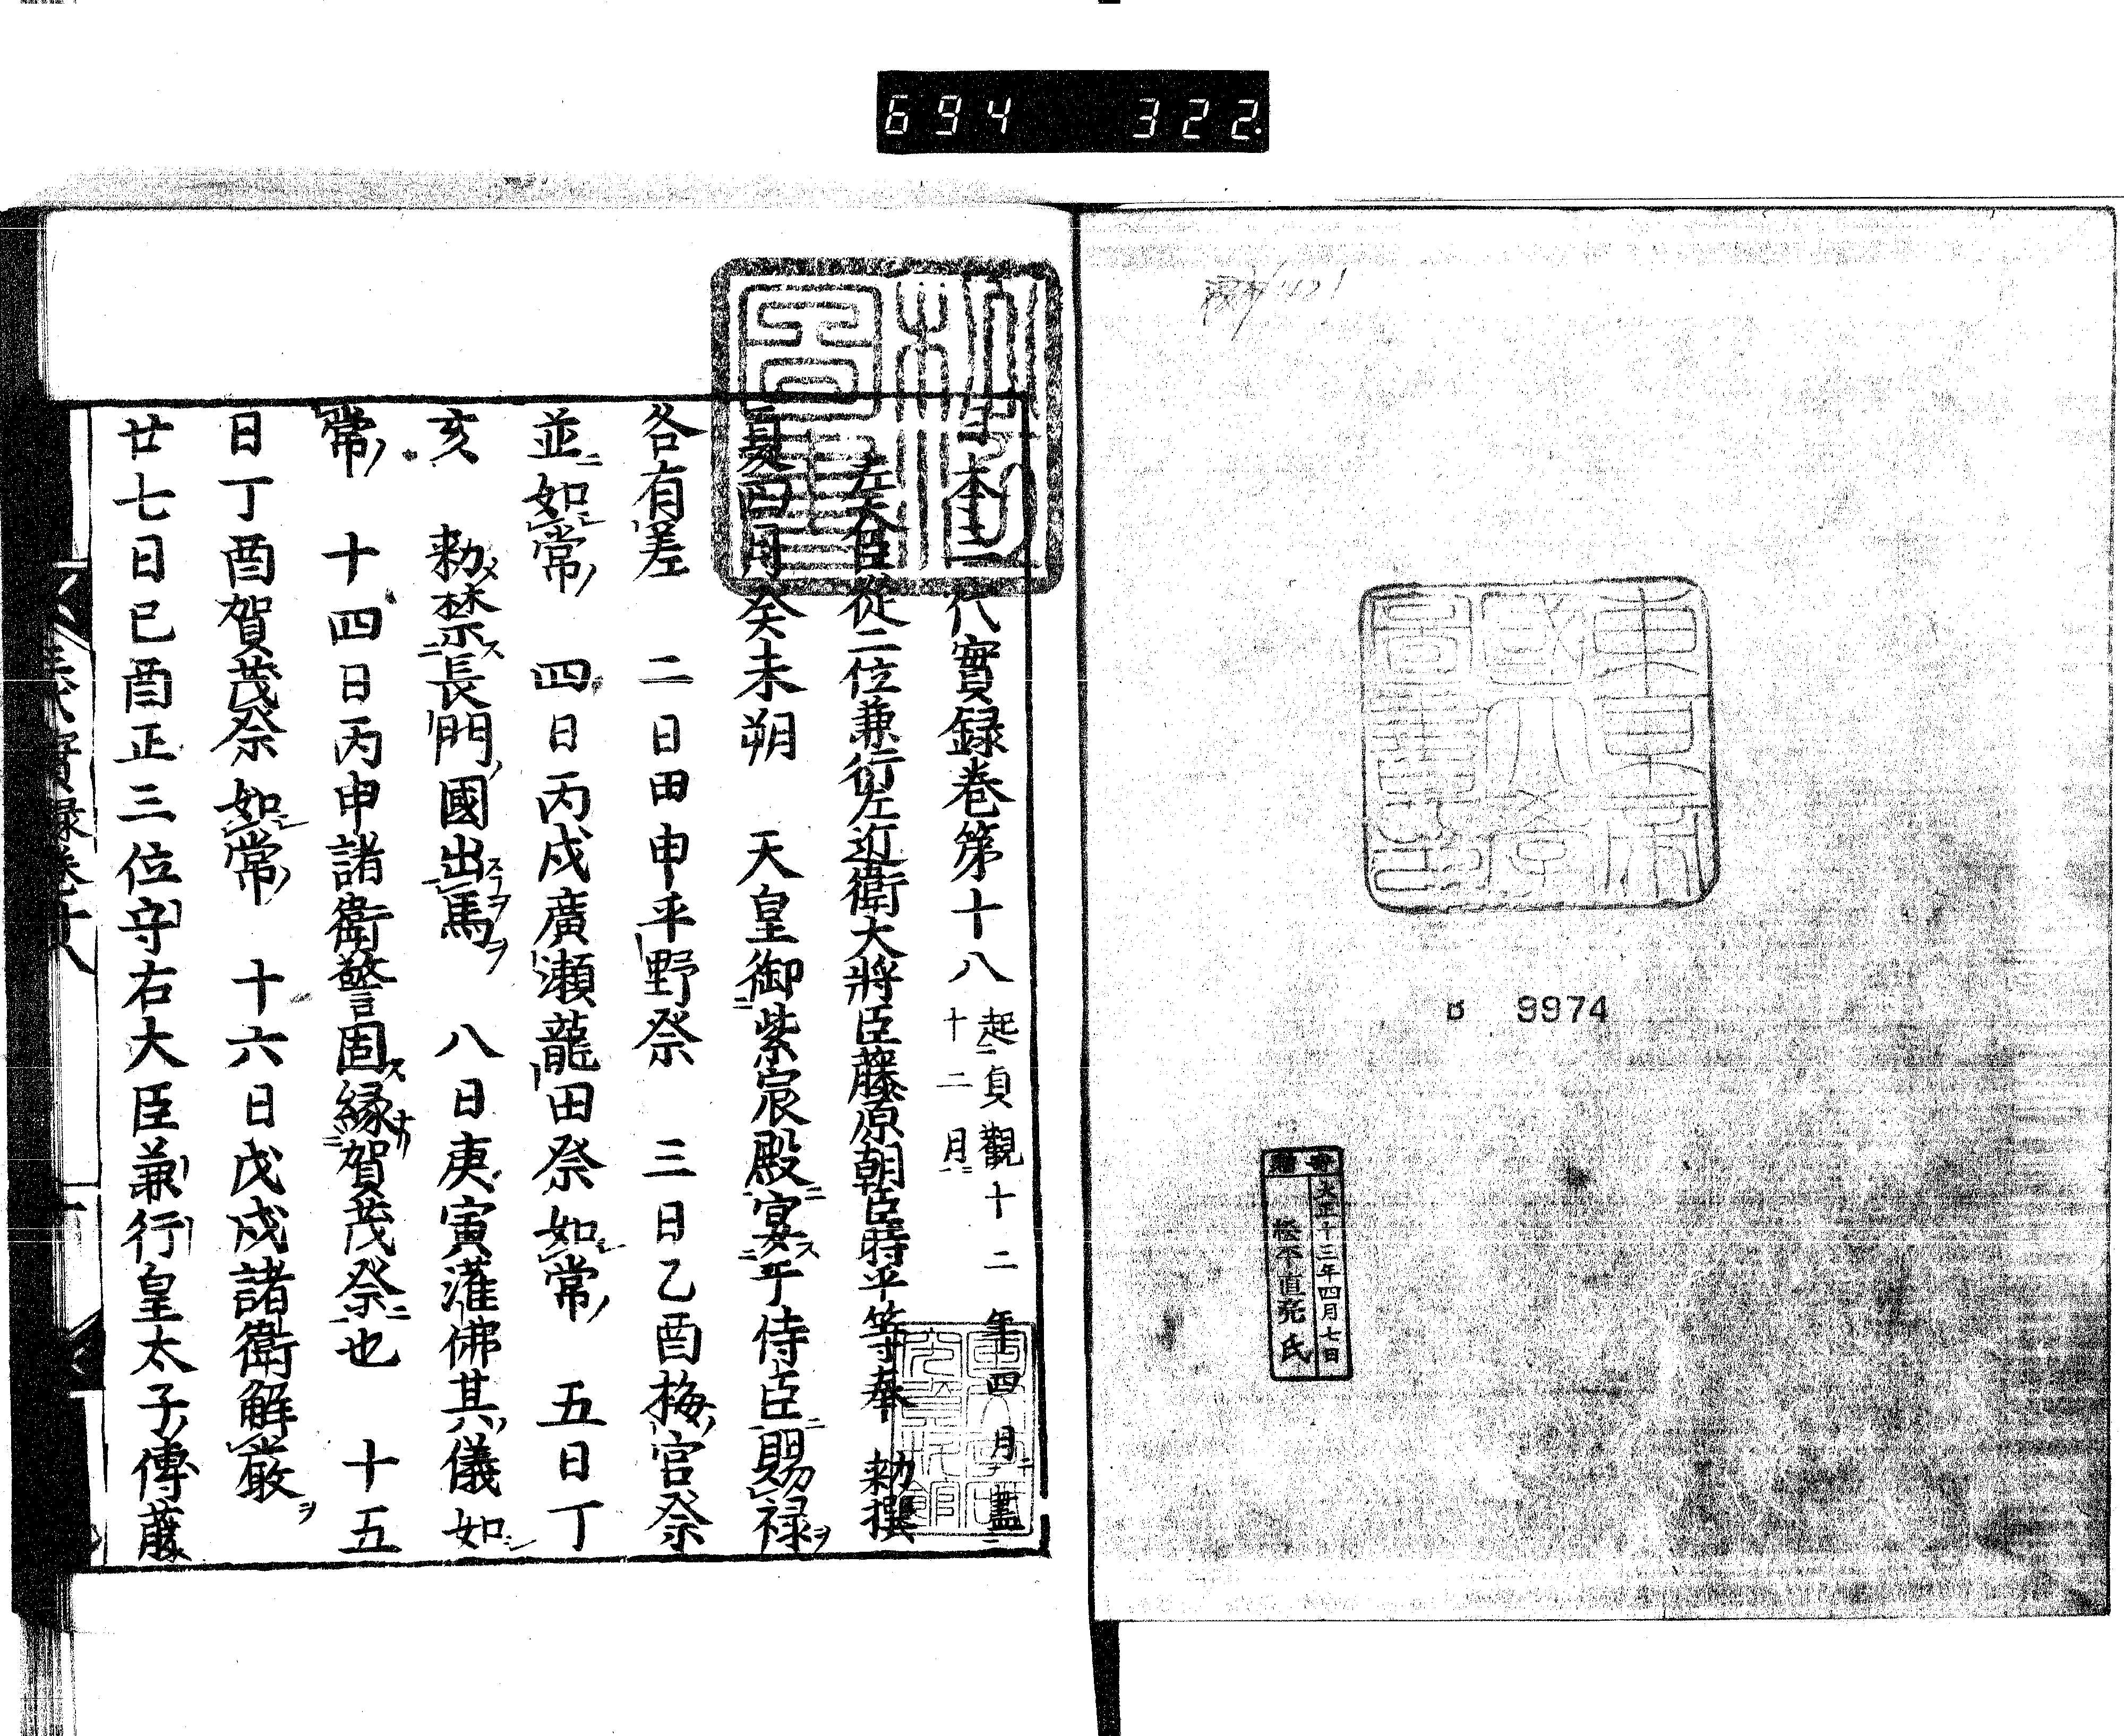 694 322
東京帝
國大學
圖書印
B 9974
寄贈
大正十三年四月七日
松平直亮氏
日本三代實録卷第十八 起貞觀十二年四月盡十二月
左大臣從二位兼行左近衛大將臣藤原朝臣時平等奉 勅撰
夏四月癸未朔 天皇御紫宸殿宴于侍臣賜禄
各有差 二日甲申平野祭 三日乙酉梅宮祭
並如常 四日丙戌廣瀬龍田祭如常 五日丁
亥 勅禁長門國出馬 八日庚寅灌佛其儀如
常 十四日丙申諸衛警固縁賀茂祭也 十五
日丁酉賀茂祭如常 十六日戊戌諸衛解嚴
廿七日己酉正三位守右大臣兼行皇太子傅藤